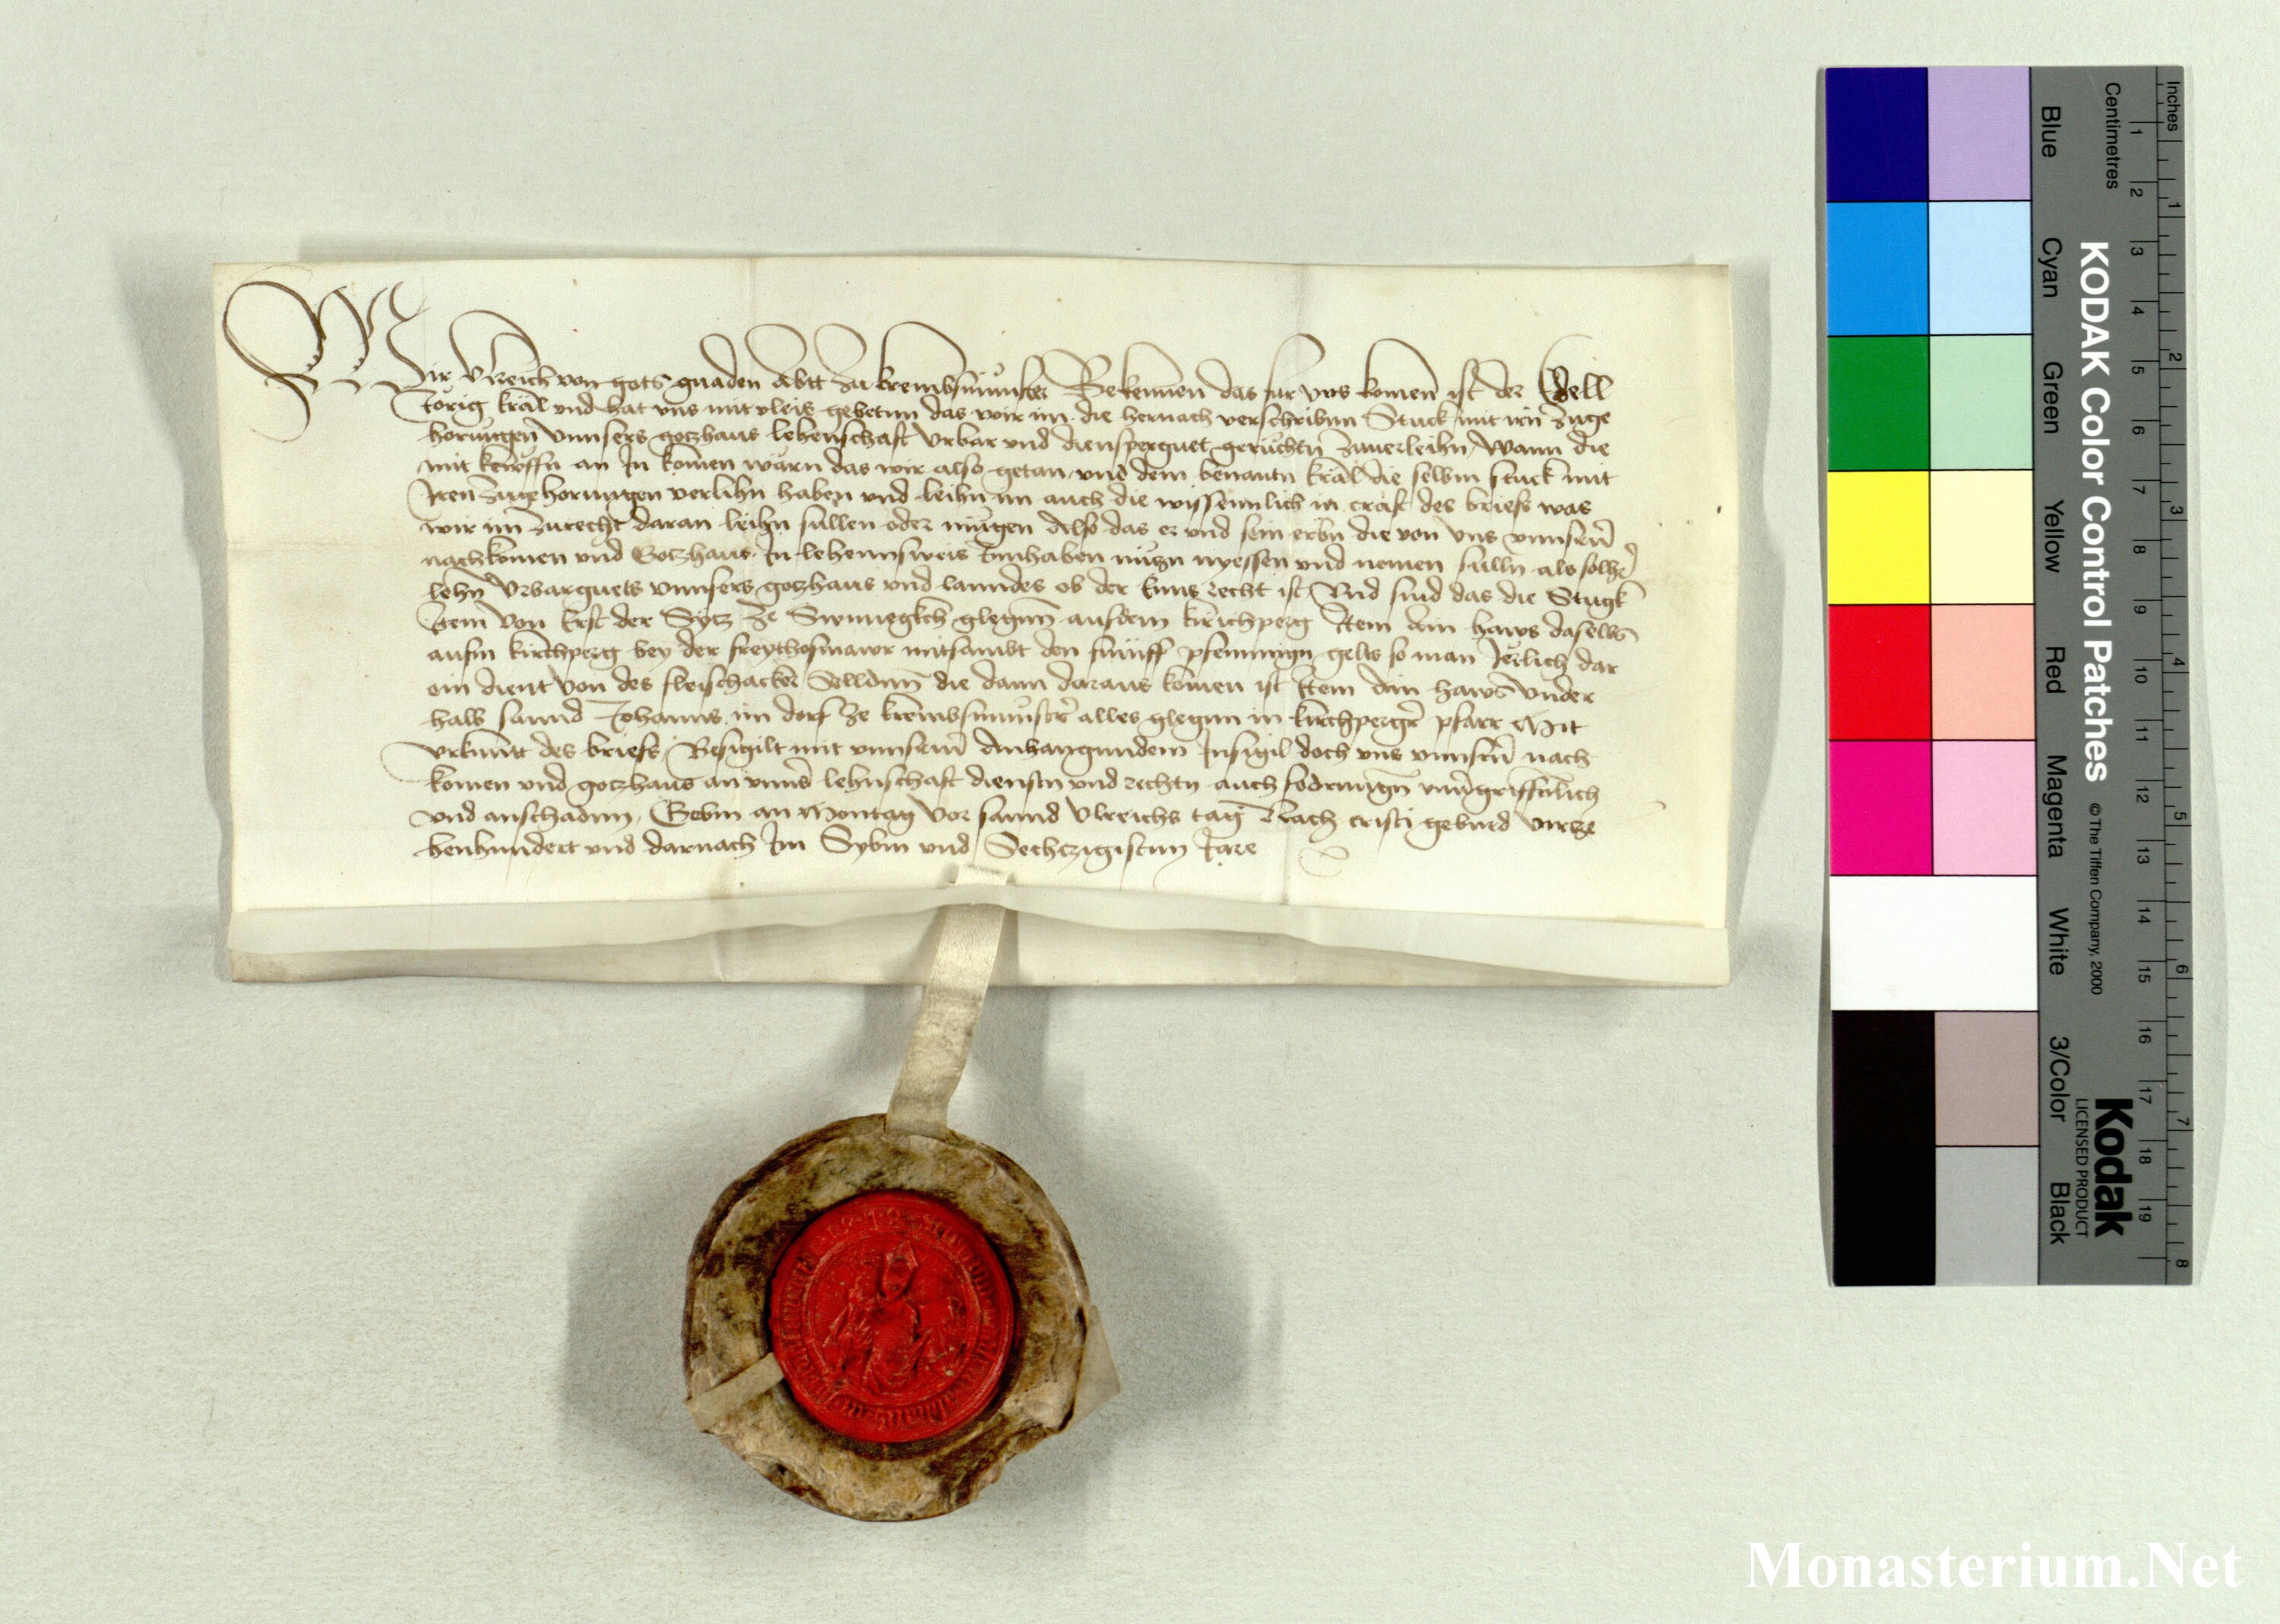 Wir Vlreich von gots gnaden Abtt zu krembsmunster Bekennen das fur vns komen ist der Edell
Jorig kräl vnd hat vns mit vleis gebetnn das wir im die hernach verschribnn Stuck mit irn Zuge
horungen vnnsers gotzhaus lehenschaft vrbar vnd dienspergguet geruchtn Zuuerleihn Wann die
mit kewffn an In komen wärn das wir also getan vnd dem benantn kräl die selbm stuck mit
Iren Zugehorungen verlihn haben vnd leihn im auch die wissenntlich in craft des briefs was
wir im zurecht daran leihn sullen oder mugen Also das er vnd sein erbn die von vns vnnsern
nachkomen vnd Gotzhaus In lehennsweis Innhaben nuczn nyessen vnd nemen sulln als solher
lehn vrbarguets vnnsers gotzhaus vnd lanndes ob der Enns recht ist Vnd sind das die Stugk
Item von Erst der Sytz ze glegnn aufdem kirichperg Item ain haws daselbs
aufm kirchperg bey der freythofmawr mitsambt den funff pfenningn gelts so man Jerlich dar
ein dient von des fleischacker Selldnn die dann daraus komen ist Item ain haws vnder
halb sannd Johanns im dorf ze krembsmunster alles glegnn in kirchperger pfarr Mit
vrkunt des briefs Besigilt mit vnnserm Anhangundem Insigil doch vns vnnsern nach
komen vnd gotzhaus an vnnser lehnschaft dienstn vnd rechtn auch fodrungn vnuergriffnlich
vnd anschadnn Gebnn an Montag vor sannd Vlreichs tag Nach cristi geburd vierze
henhundert vnd darnach Im Sybnn vnd Sechczigistnn Jare
Inches
Centimetres
1 2 3 4 5 6 7 8 9 10 11 12 13 14 15 16 17 18 19
1 2 3 4 5 6 7 8
KODAK Color Control Patches
© The Tiffen Company, 2000
Kodak
LICENSED PRODUCT
Blue
Cyan
Green
Yellow
Red
Magenta
White
3/Color
Black
Monasterium.Net